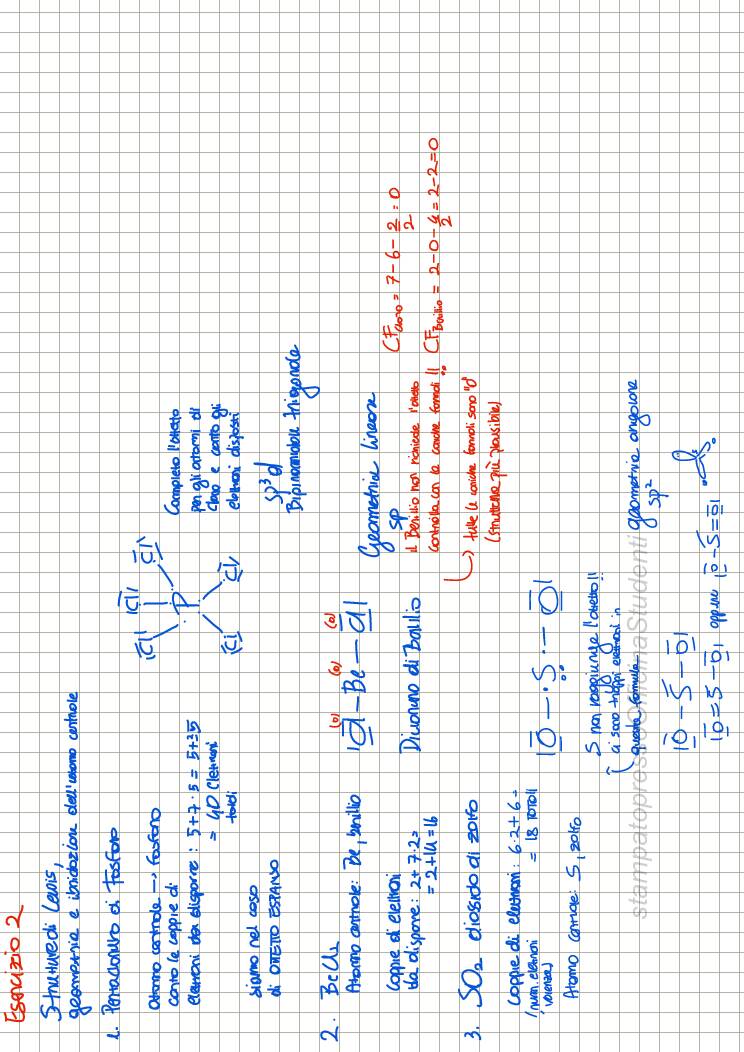 Esercizio 2
Strutture di Lewis,
geometria e ibridazione dell'atomo centrale
1. Pentacloruro di Fosforo
atomo centrale → fosforo
conto le coppie di
elettroni da disporre: 5+7·5 = 5+35
= 40 elettroni
totali
siamo nel caso
di OTTETTO ESPANSO
|Cl| |Cl| |Cl|
P
|Cl |Cl|
Completo l'ottetto
per gli atomi di
cloro e conto gli
elettroni disposti
sp³d
Bipiramidale trigonale
2. BeCl₂
Atomo centrale: Be, berillio
Coppie di elettroni
da disporre: 2+7·2=
= 2+14=16
(0) (0) (0)
|Cl — Be — Cl|
Dicloruro di Berillio
Geometria lineare
sp
il Berillio non richiede l'ottetto
controlla con le cariche formali !!
tutte le cariche formali sono "0"
(struttura più plausibile)
CF cloro = 7-6-2/2 = 0
CF Berillio = 2-0-4/2 = 2-2=0
3. SO₂ diossido di zolfo
Coppie di elettroni: 6·2+6=
(num. elettroni = 18 TOTALI
valenza)
Atomo centrale: S, zolfo
|O — S — O|
S non raggiunge l'ottetto!!
ci sono troppi elettroni in
questa formula
|O — S — O|
|O = S — O| oppure |O — S = O|
geometria angolare
sp²
stampatopressoOfficinaStudenti